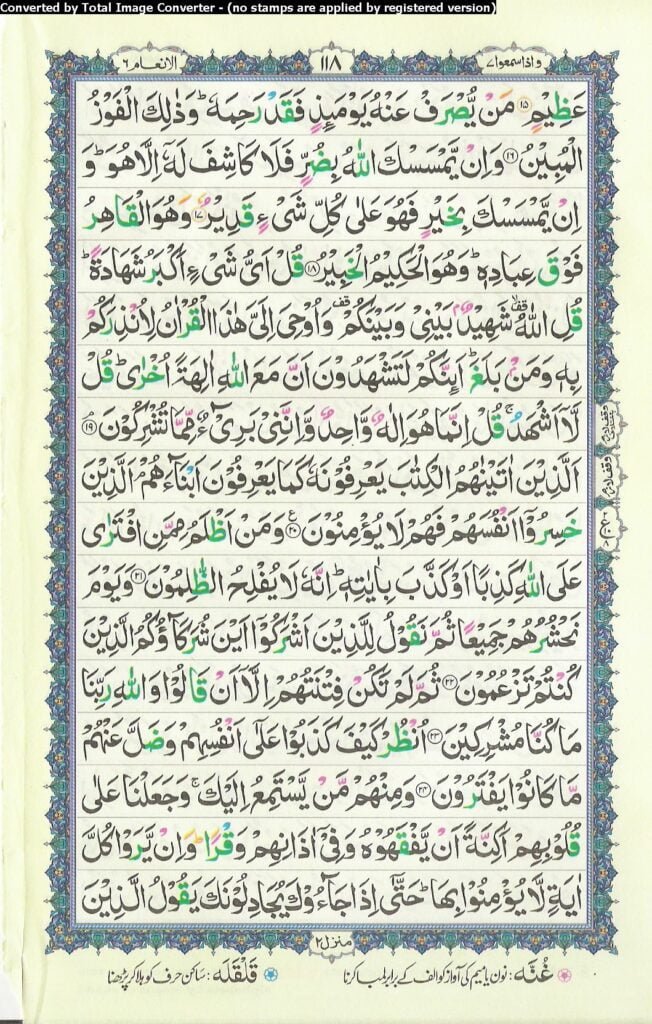 Converted by Total Image Converter - (no stamps are applied by registered version)
واذاسمعوا ٧
١١٨
الانعام ٦
عَظِیْمٍ ۱۵ مَنْ یُّصْرَفْ عَنْهُ یَوْمَىِٕذٍ فَقَدْ رَحِمَهٗ ؕ وَذٰلِكَ الْفَوْزُ
الْمُبِیْنُ ۱۶ وَاِنْ یَّمْسَسْكَ اللّٰهُ بِضُرٍّ فَلَا كَاشِفَ لَهٗۤ اِلَّا هُوَ ؕ وَ
اِنْ یَّمْسَسْكَ بِخَیْرٍ فَهُوَ عَلٰی كُلِّ شَیْءٍ قَدِیْرٌ ۱۷ وَهُوَ الْقَاهِرُ
فَوْقَ عِبَادِهٖ ؕ وَهُوَ الْحَكِیْمُ الْخَبِیْرُ ۱۸ قُلْ اَیُّ شَیْءٍ اَكْبَرُ شَهَادَةً ؕ
قُلِ اللّٰهُ ۙ۫ شَهِیْدٌۢ بَیْنِیْ وَبَیْنَكُمْ ۫ وَاُوْحِیَ اِلَیَّ هٰذَا الْقُرْاٰنُ لِاُنْذِرَكُمْ
بِهٖ وَمَنْۢ بَلَغَ ؕ اَىِٕنَّكُمْ لَتَشْهَدُوْنَ اَنَّ مَعَ اللّٰهِ اٰلِهَةً اُخْرٰی ؕ قُلْ
لَّاۤ اَشْهَدُ ۚ قُلْ اِنَّمَا هُوَ اِلٰهٌ وَّاحِدٌ وَّاِنَّنِیْ بَرِیْٓءٌ مِّمَّا تُشْرِكُوْنَ ۘ ۱۹
اَلَّذِیْنَ اٰتَیْنٰهُمُ الْكِتٰبَ یَعْرِفُوْنَهٗ كَمَا یَعْرِفُوْنَ اَبْنَآءَهُمْ ۘ اَلَّذِیْنَ
خَسِرُوْۤا اَنْفُسَهُمْ فَهُمْ لَا یُؤْمِنُوْنَ ۲۰ ع وَمَنْ اَظْلَمُ مِمَّنِ افْتَرٰی
عَلَی اللّٰهِ كَذِبًا اَوْ كَذَّبَ بِاٰیٰتِهٖ ؕ اِنَّهٗ لَا یُفْلِحُ الظّٰلِمُوْنَ ۲۱ وَیَوْمَ
نَحْشُرُهُمْ جَمِیْعًا ثُمَّ نَقُوْلُ لِلَّذِیْنَ اَشْرَكُوْۤا اَیْنَ شُرَكَآؤُكُمُ الَّذِیْنَ
كُنْتُمْ تَزْعُمُوْنَ ۲۲ ثُمَّ لَمْ تَكُنْ فِتْنَتُهُمْ اِلَّاۤ اَنْ قَالُوْا وَاللّٰهِ رَبِّنَا
مَا كُنَّا مُشْرِكِیْنَ ۲۳ اُنْظُرْ كَیْفَ كَذَبُوْا عَلٰۤی اَنْفُسِهِمْ وَضَلَّ عَنْهُمْ
مَّا كَانُوْا یَفْتَرُوْنَ ۲۴ وَمِنْهُمْ مَّنْ یَّسْتَمِعُ اِلَیْكَ ۚ وَجَعَلْنَا عَلٰی
قُلُوْبِهِمْ اَكِنَّةً اَنْ یَّفْقَهُوْهُ وَفِیْۤ اٰذَانِهِمْ وَقْرًا ؕ وَاِنْ یَّرَوْا كُلَّ
اٰیَةٍ لَّا یُؤْمِنُوْا بِهَا ؕ حَتّٰۤی اِذَا جَآءُوْكَ یُجَادِلُوْنَكَ یَقُوْلُ الَّذِیْنَ
منزل ٢
غُنَّه: نون یا میم کی آواز کو الف کے برابر لمبا کرنا
قَلْقَلَه: ساکن حرف کو ہلا کر پڑھنا